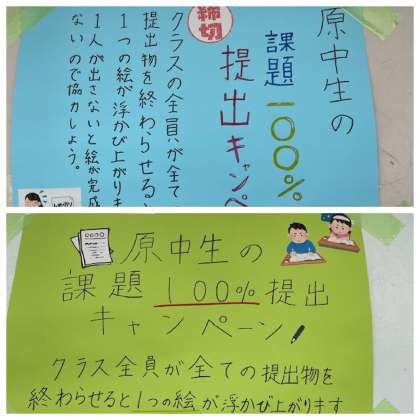 原中生の
課題100%
提出キャンペ
締切
クラスの全員が全て
提出物を終わらせると
1つの絵が浮かび上がりま
1人が出さないと絵が完成
ないので協力しよう。
原中生の
課題100%提出
キャンペーン!
クラス全員が全ての提出物を
終わらせると1つの絵が浮かび上がります